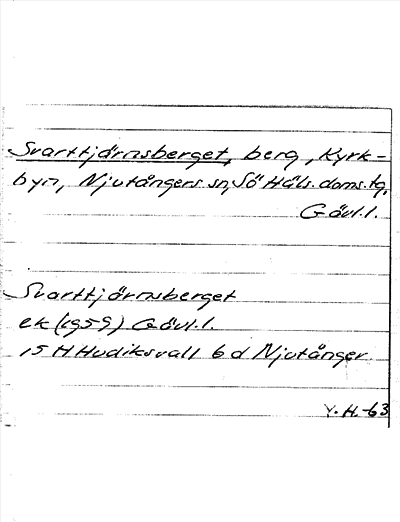 Svarttjärnsberget, berg, Kyrk-
byn, Njutångers sn, Sö Häls. doms. tg,
Gävl.l.
Svarttjärnsberget
ek (1959) Gävl.l.
15 H Hudiksvall 6 d Njutånger
Y. H. -63